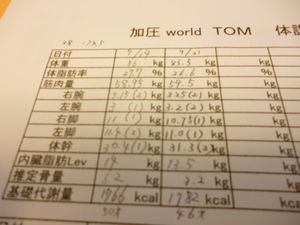 加圧 world TOM 体
日付 7/14 7/21
体重 86 kg 85.5 kg kg
体脂肪率 27.7 % 26.6 % %
筋肉量 58.95 kg 59.5 kg kg
右腕 kg 3.25(2) kg kg
左腕 3 (1) kg 3.2(2) kg kg
右脚 11 (1) kg 10.75(1) kg kg
左脚 11.4(2) kg 11.0(1) kg kg
体幹 30.4(1) kg 31.3(2) kg kg
内臓脂肪Lev 14 13.5
推定骨量 3.2 kg 3.2 kg kg
基礎代謝量 1766 kcal 1782 kcal kcal